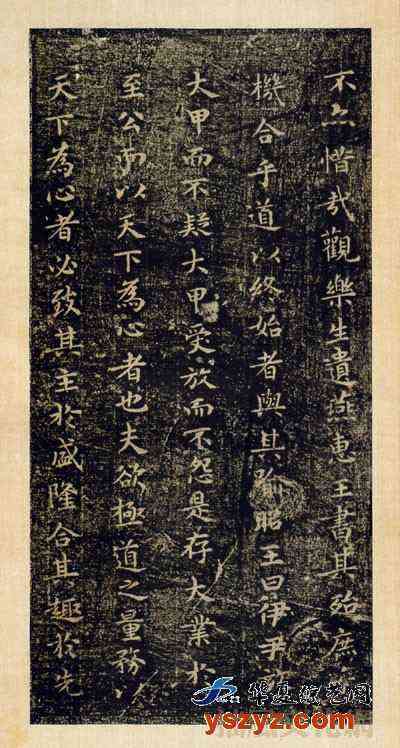 不亦惜哉觀樂生遺燕惠王書其殆庶
機合乎道以終始者與其喻昭王曰伊尹
大甲而不疑大甲受放而不怨是存大業於
至公而以天下為心者也夫欲極道之量務以
天下為心者必致其主於盛隆合其趣於先
yszyz.com